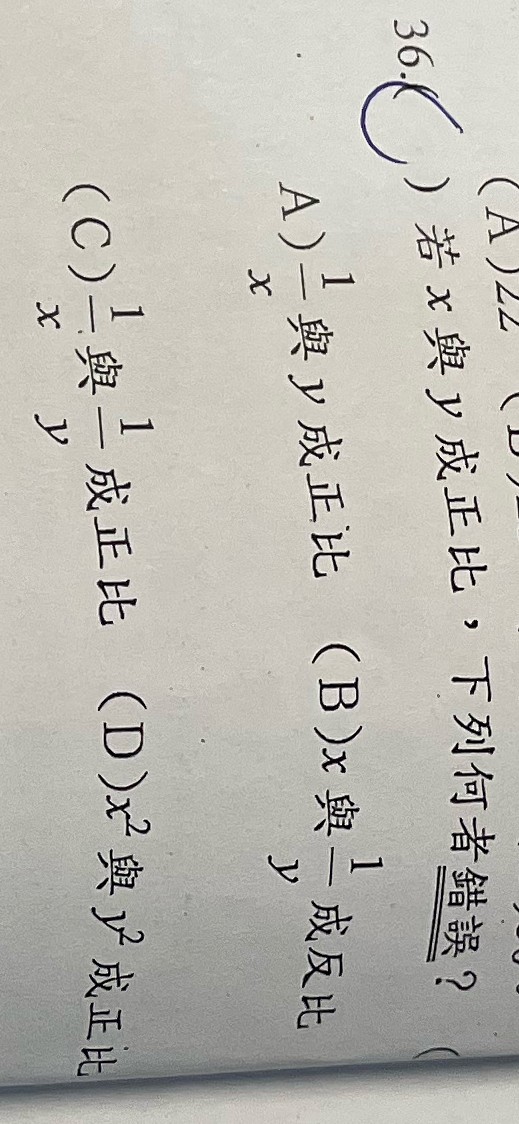 (A)22
36.( ) 若 x 與 y 成正比，下列何者錯誤？ (
A) 1/x 與 y 成正比 (B) x 與 1/y 成反比
(C) 1/x 與 1/y 成正比 (D) x² 與 y² 成正比